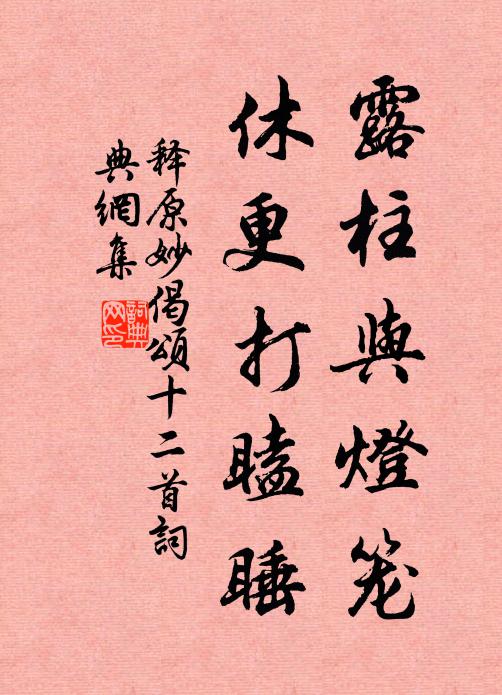 露柱與燈笼
休更打瞌睡
释原妙偈頌十二首詞
典網集
詞典网印